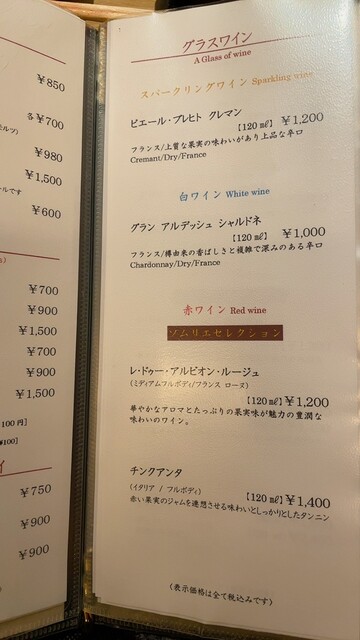 ¥850
各¥700
¥980
¥1,500
¥600
¥700
¥900
¥1,500
¥700
¥900
¥1,500
100円]
¥100]
¥750
¥900
¥900
グラスワイン
A Glass of wine
スパークリングワイン Sparkling wine
ピエール・ブレヒト クレマン
【120㎖】 ¥1,200
フランス/上質な果実の味わいがあり上品な辛口
Cremant/Dry/France
白ワイン White wine
グラン アルデッシュ シャルドネ
【120㎖】 ¥1,000
フランス/樽由来の香ばしさと複雑で深みのある辛口
Chardonnay/Dry/France
赤ワイン Red wine
ソムリエセレクション
レ・ドゥー・アルビオン・ルージュ
(ミディアムフルボディ/フランス ローヌ)
【120㎖】¥1,200
華やかなアロマとたっぷりの果実味が魅力の豊潤な
味わいのワイン。
チンクアンタ
(イタリア / フルボディ)
【120㎖】¥1,400
赤い果実のジャムを連想させる味わいとしっかりとしたタンニン
(表示価格は全て税込みです)